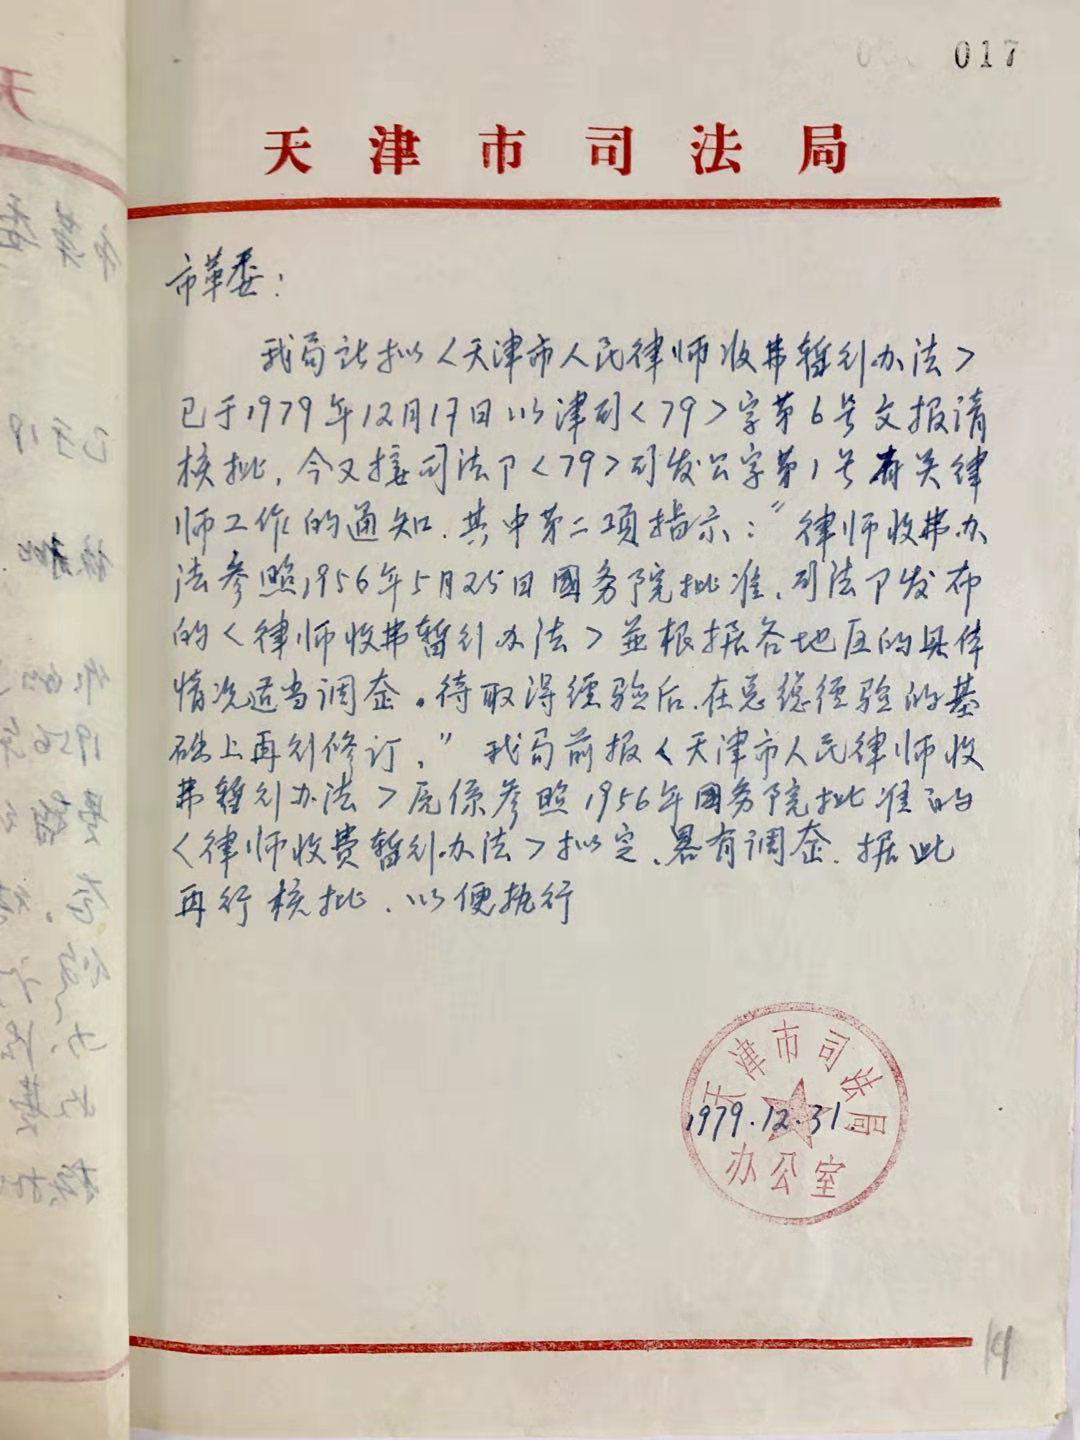 017
天津市司法局
市革委：
我局试拟〈天津市人民律师收费暂行办法〉
已于1979年12月17日以津司〈79〉字第6号文报请
核批，今又接司法卩〈79〉司发公字第1号有关律
师工作的通知．其中第二项指示：“律师收费办
法参照1956年5月25日國务院批准、司法卩发布
的〈律师收费暂行办法〉並根据各地区的具体
情况适当调查。待取得经验后，在总结经验的基
础上再行修订，”我局前报〈天津市人民律师收
费暂行办法〉原係参照1956年國务院批准的
〈律师收费暂行办法〉拟定、畧有调查．据此
再行核批、以便执行
天津市司法局
1979.12.31.
办公室
14